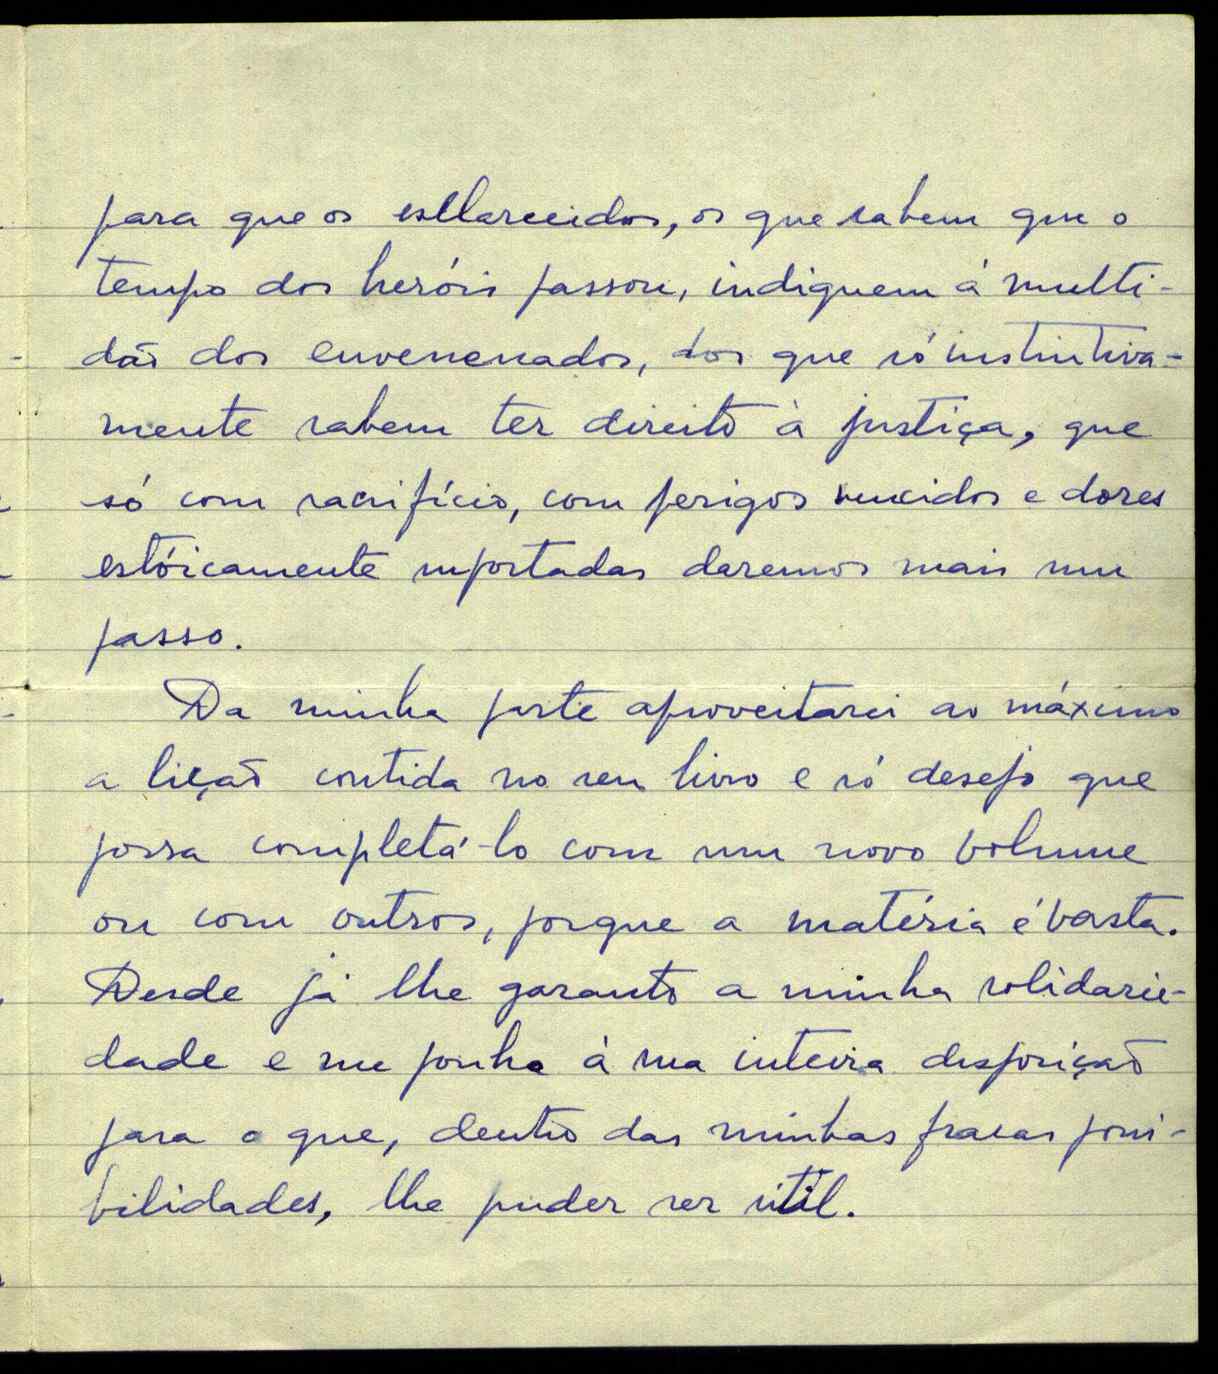 para que os esclarecidos, os que sabem que o
tempo dos heróis passou, indiquem à multi-
dão dos envenenados, dos que só instintiva-
mente sabem ter direito à justiça, que
só com sacrifício, com perigos vencidos e dores
estóicamente suportadas daremos mais um
passo.
Da minha parte aproveitarei ao máximo
a lição contida no seu livro e só desejo que
possa completá-lo com um novo volume
ou com outros, porque a matéria é vasta.
Desde já lhe garanto a minha solidarie-
dade e me ponho à sua inteira disposição
para o que, dentro das minhas fracas possi-
bilidades, lhe puder ser útil.